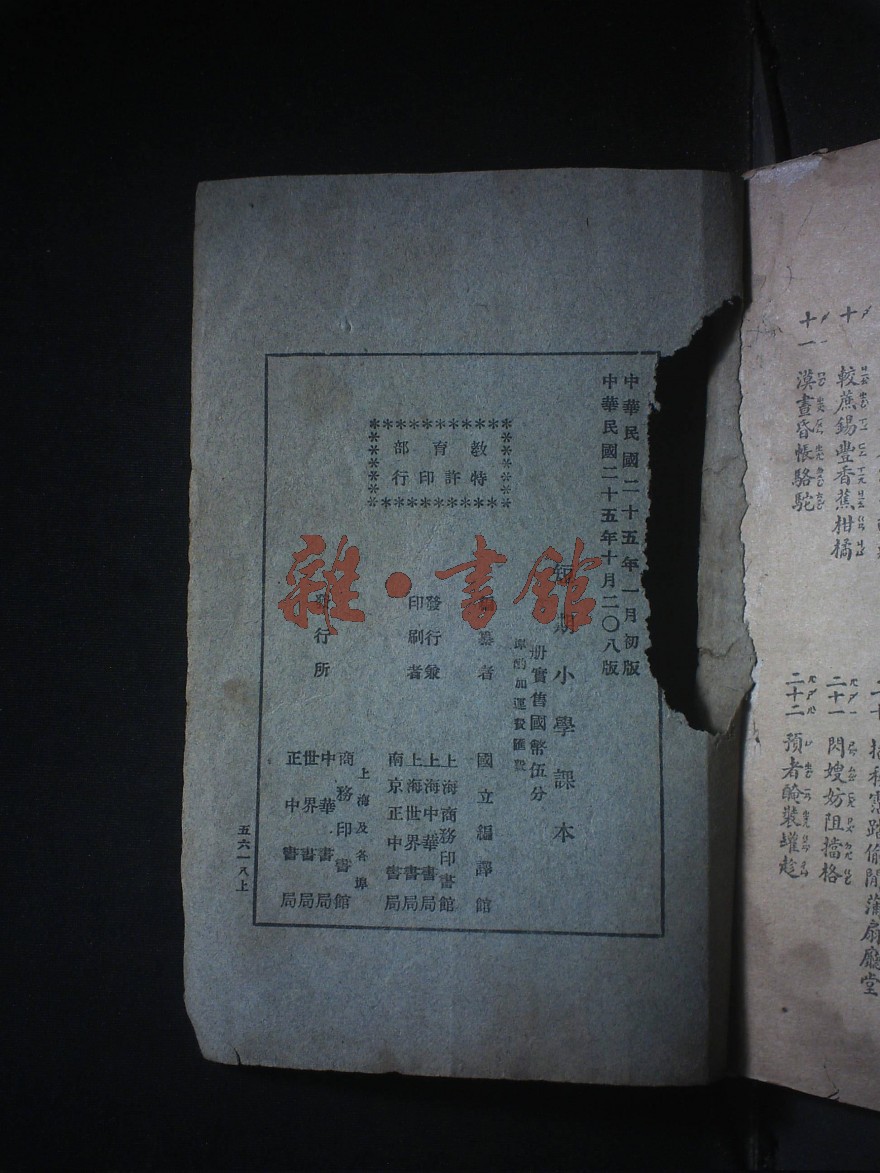 中華民國二十五年一月初版
中華民國二十五年十月二〇八版
短期小學課本
册實售國幣伍分
加運費匯費
編纂者
國立編譯館
發行兼
印刷者
上海商務印書館
上海中華書局
上海世界書局
南京正中書局
教育部
特許印行
發行所
上海及各埠
商務印書館
中華書局
世界書局
正中書局
五六一八上
雜·書館
十
較蔗錫豐香蕉柑橘
十一
漠晝昏帳駱駝
二十一
閃嫂妨阻擋格
二十二
預者醃裝罐趁